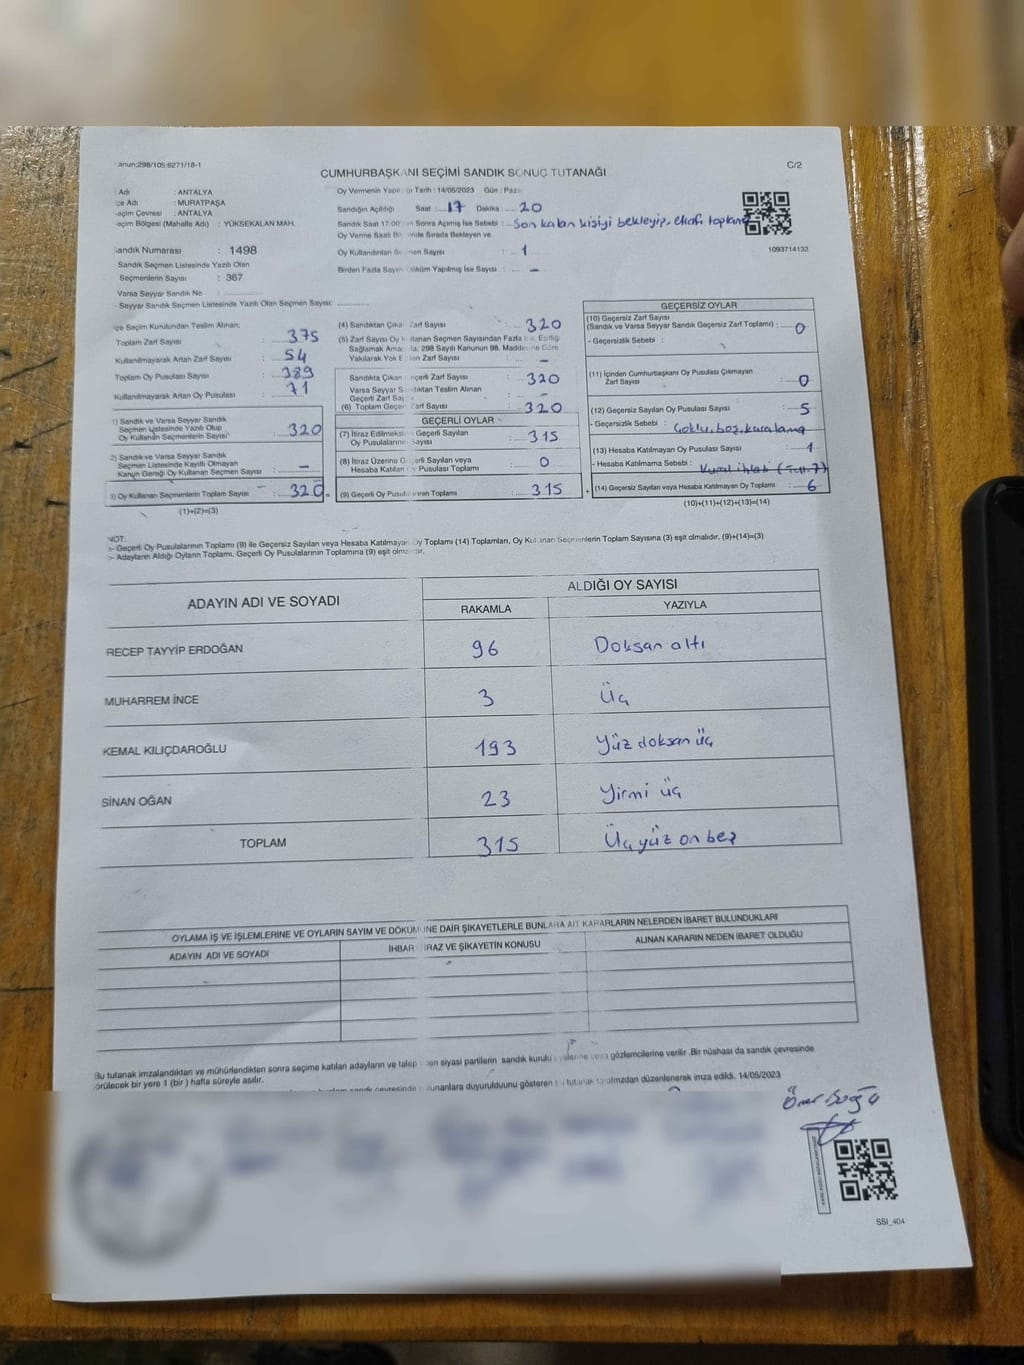 anun:298/105:6271/18-1
C/2
CUMHURBAŞKANI SEÇİMİ SANDIK SONUÇ TUTANAĞI
Adı : ANTALYA
çe Adı : MURATPAŞA
eçim Çevresi : ANTALYA
eçim Bölgesi (Mahalle Adı) : YÜKSEKALAN MAH.
andık Numarası : 1498
Sandık Seçmen Listesinde Yazılı Olan
Seçmenlerin Sayısı : 367
Varsa Seyyar Sandık No :
Seyyar Sandık Seçmen Listesinde Yazılı Olan Seçmen Sayısı:
Oy Vermenin Yapıldığı Tarih : 14/05/2023 Gün : Pazar
Sandığın Açıldığı Saat : 17 Dakika : 20
Sandık Saat 17:00 Sonra Açımış İse Sebebi : Son kalan kişiyi bekleyip,
Oy Verme Saati Bi inde Sırada Bekleyen ve
Oy Kullandırılan Seçmen Sayısı : 1
Birden Fazla Sayım Döküm Yapılmış İse Sayısı : -
1093714132
çe Seçim Kurulundan Teslim Alınan:
Toplam Zarf Sayısı : 375
Kullanılmayarak Artan Zarf Sayısı : 54
Toplam Oy Pusulası Sayısı : 389
Kullanılmayarak Artan Oy Pusulası : 71
1) Sandık ve Varsa Seyyar Sandık
Seçmen Listesinde Yazılı Olup
Oy Kullanan Seçmenlerin Sayısı : 320
2) Sandık ve Varsa Seyyar Sandık
Seçmen Listesinde Kayıtlı Olmayan
Kanun Gereği Oy Kullanan Seçmen Sayısı : -
3) Oy Kullanan Seçmenlerin Toplam Sayısı : 320
(1)+(2)=(3)
(4) Sandıktan Çıkan Zarf Sayısı : 320
(5) Zarf Sayısı Oy Kullanan Seçmen Sayısından Fazla İse, Eşitliği
Sağlamak Amacıyla; 298 Sayılı Kanunun 98. Maddesine Göre
Yakılarak Yok Edilen Zarf Sayısı : -
Sandıkta Çıkan Geçerli Zarf Sayısı : 320
Varsa Seyyar Sandıktan Teslim Alınan
Geçerli Zarf Sayısı : -
(6) Toplam Geçerli Zarf Sayısı : 320
GEÇERLİ OYLAR
(7) İtiraz Edilmeksizin Geçerli Sayılan
Oy Pusulalarının Sayısı : 315
(8) İtiraz Üzerine Geçerli Sayılan veya
Hesaba Katılan Oy Pusulası Toplamı : 0
(9) Geçerli Oy Pusulalarının Toplamı : 315
GEÇERSİZ OYLAR
(10) Geçersiz Zarf Sayısı
(Sandık ve Varsa Seyyar Sandık Geçersiz Zarf Toplamı) : 0
- Geçersizlik Sebebi :
(11) İçinden Cumhurbaşkanı Oy Pusulası Çıkmayan
Zarf Sayısı : 0
(12) Geçersiz Sayılan Oy Pusulası Sayısı : 5
- Geçersizlik Sebebi : Çoklu, boş, karalama
(13) Hesaba Katılmayan Oy Pusulası Sayısı : 1
- Hesaba Katılmama Sebebi : Kural ihlali
(14) Geçersiz Sayılan veya Hesaba Katılmayan Oy Toplamı : 6
(10)+(11)+(12)+(13)=(14)
NOT:
- Geçerli Oy Pusulalarının Toplamı (9) ile Geçersiz Sayılan veya Hesaba Katılmayan Oy Toplamı (14) Toplamları, Oy Kullanan Seçmenlerin Toplam Sayısına (3) eşit olmalıdır. (9)+(14)=(3)
- Adayların Aldığı Oyların Toplamı, Geçerli Oy Pusulalarının Toplamına (9) eşit olmalıdır.
ADAYIN ADI VE SOYADI ALDIĞI OY SAYISI
RAKAMLA YAZIYLA
RECEP TAYYİP ERDOĞAN 96 Doksan altı
MUHARREM İNCE 3 Üç
KEMAL KILIÇDAROĞLU 193 Yüz doksan üç
SİNAN OĞAN 23 Yirmi üç
TOPLAM 315 Üç yüz on beş
OYLAMA İŞ VE İŞLEMLERİNE VE OYLARIN SAYIM VE DÖKÜMÜNE DAİR ŞİKAYETLERLE BUNLARA AİT KARARLARIN NELERDEN İBARET BULUNDUKLARI
ADAYIN ADI VE SOYADI İHBAR İTİRAZ VE ŞİKAYETİN KONUSU ALINAN KARARIN NEDEN İBARET OLDUĞU
Bu tutanak imzalandıktan ve mühürlendikten sonra seçime katılan adayların ve talep eden siyasi partilerin sandık kurulu üyelerine veya gözlemcilerine verilir .Bir nüshası da sandık çevresinde
örülecek bir yere 1 (bir ) hafta süreyle asılır.
sandık çevresinde bulunanlara duyurulduunu gösteren bu tutanak tarafımızdan düzenlenerek imza edildi. 14/05/2023
SSI_404